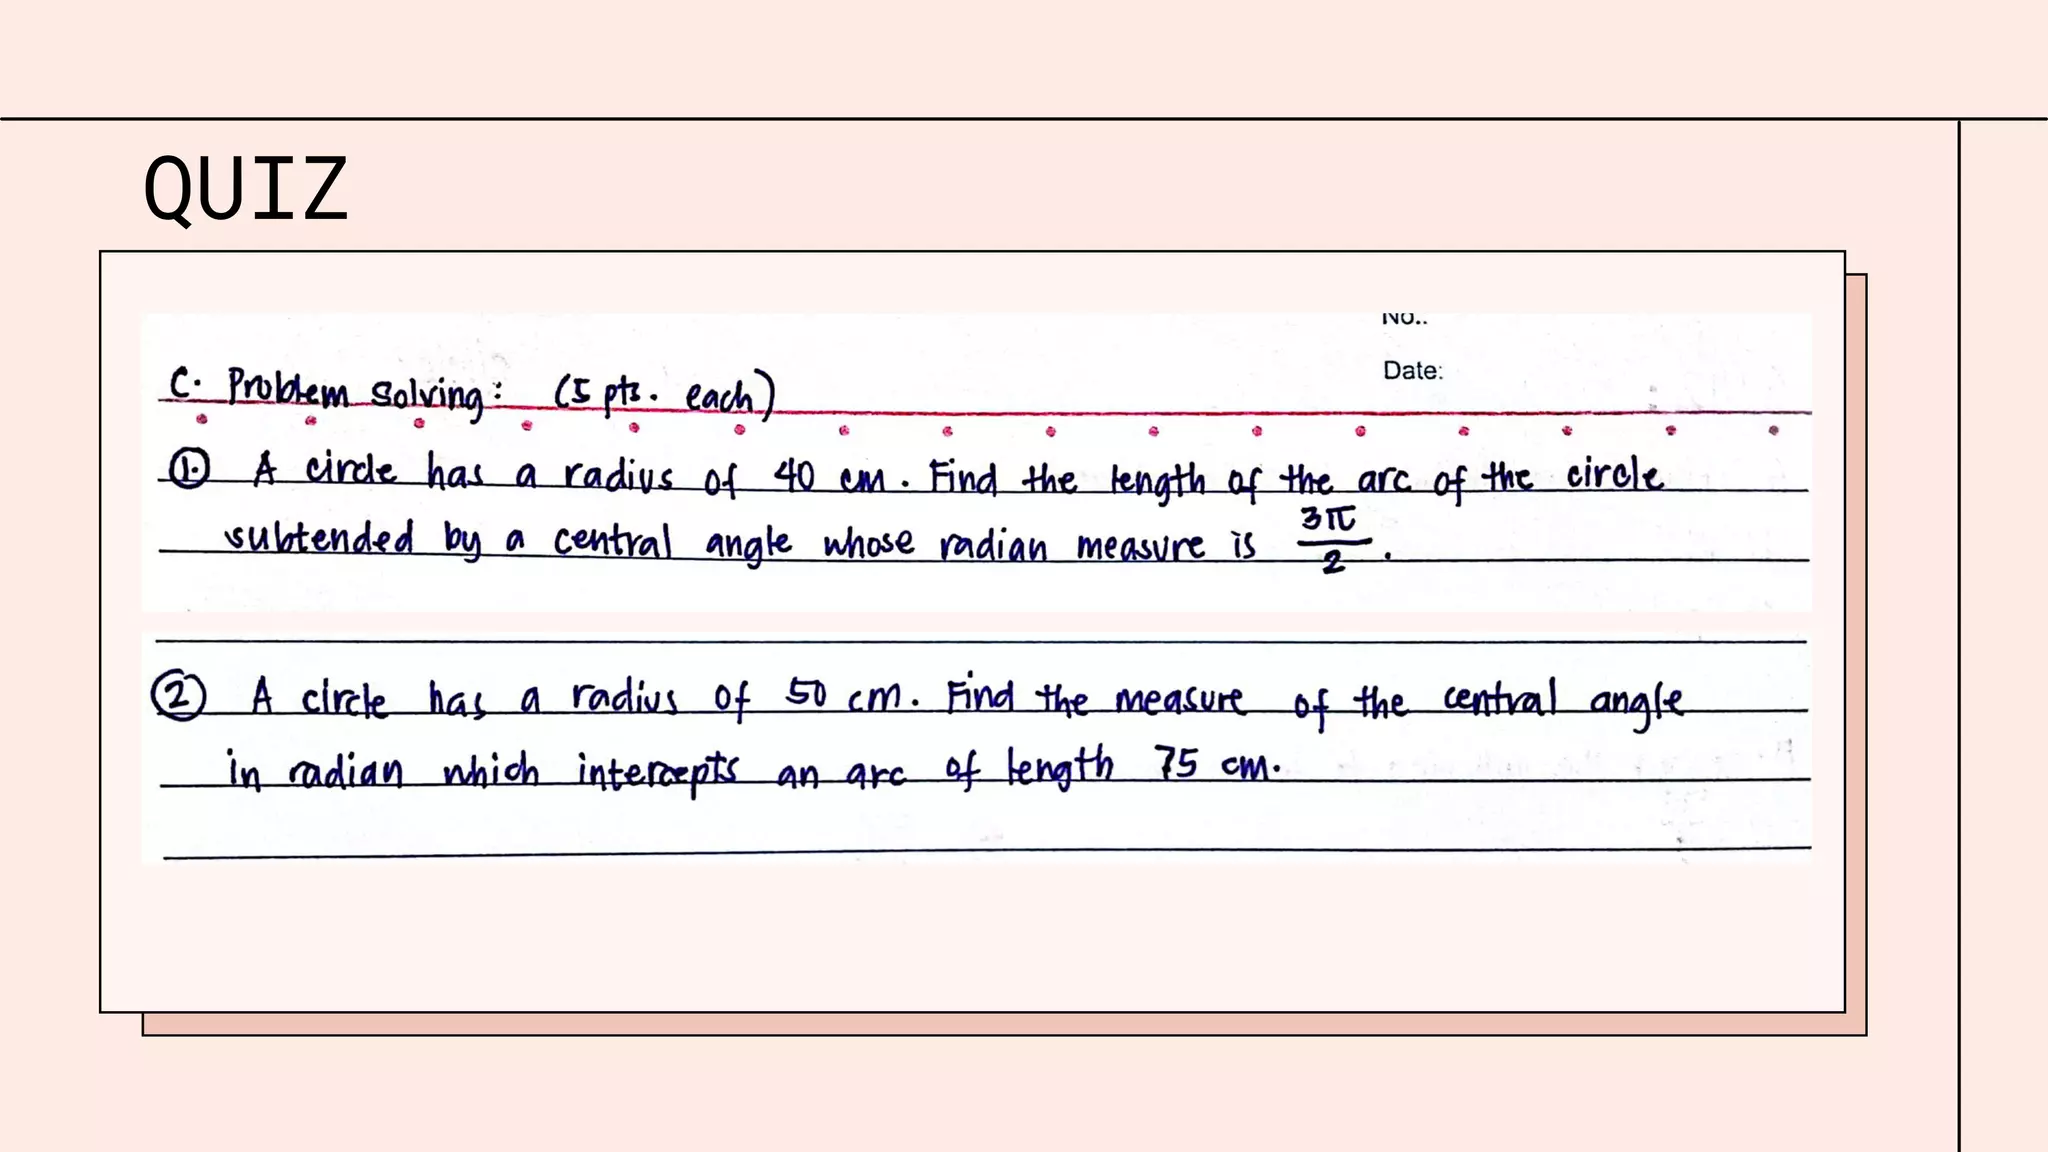 QUIZ
No..
Date:
C. Problem Solving: (5 pts. each)
1. A circle has a radius of 40 cm. Find the length of the arc of the circle
subtended by a central angle whose radian measure is 3π/2.
2 A circle has a radius of 50 cm. Find the measure of the central angle
in radian which intercepts an arc of length 75 cm.